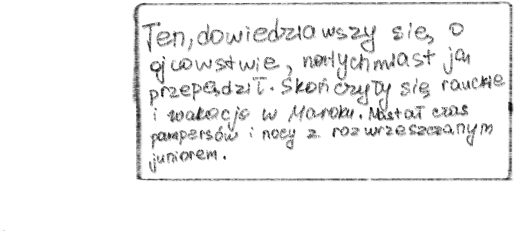 Ten, dowiedziawszy się, o
ojcowstwie, natychmiast ją
przepędził. Skończyły się rauckie
i wakacje w Maroku. Nastał czas
pampersów i nocy z rozwrzeszczanym
juniorem.